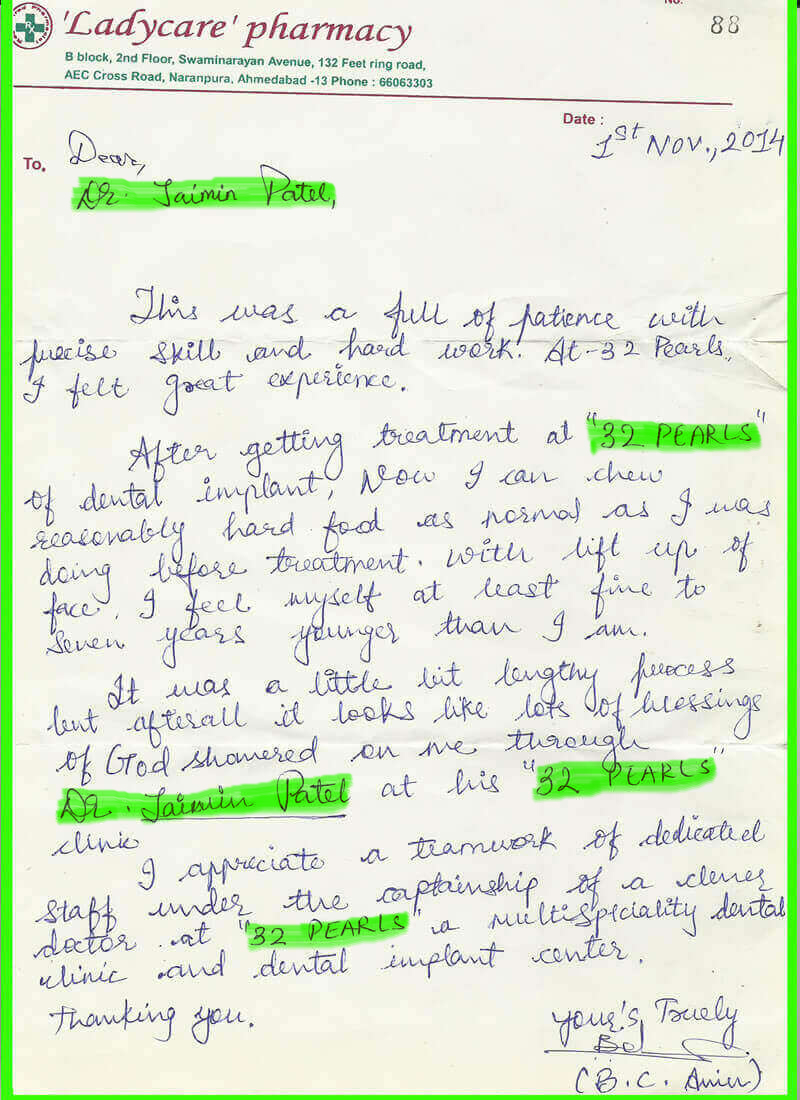 No.
88
'Ladycare' pharmacy
B block, 2nd Floor, Swaminarayan Avenue, 132 Feet ring road,
AEC Cross Road, Naranpura, Ahmedabad -13 Phone : 66063303
Date : 1st Nov., 2014
To, Dear,
Dr. Jaimin Patel,
This was a full of patience with
precise skill and hard work. At-32 Pearls,
I felt great experience.
After getting treatment at "32 PEARLS"
of dental implant, Now I can chew
reasonably hard food as normal as I was
doing before treatment. With lift up of
face, I feel myself at least five to
seven years younger than I am.
It was a little bit lengthy process
but afterall it looks like lots of blessings
of God showered on me through
Dr. Jaimin Patel at his "32 PEARLS"
clinic
I appreciate a teamwork of dedicated
staff under the captainship of a clever
doctor at "32 PEARLS" a multispeciality dental
clinic and dental implant center.
Thanking you.
Your's Truely
(B.C. Amin)